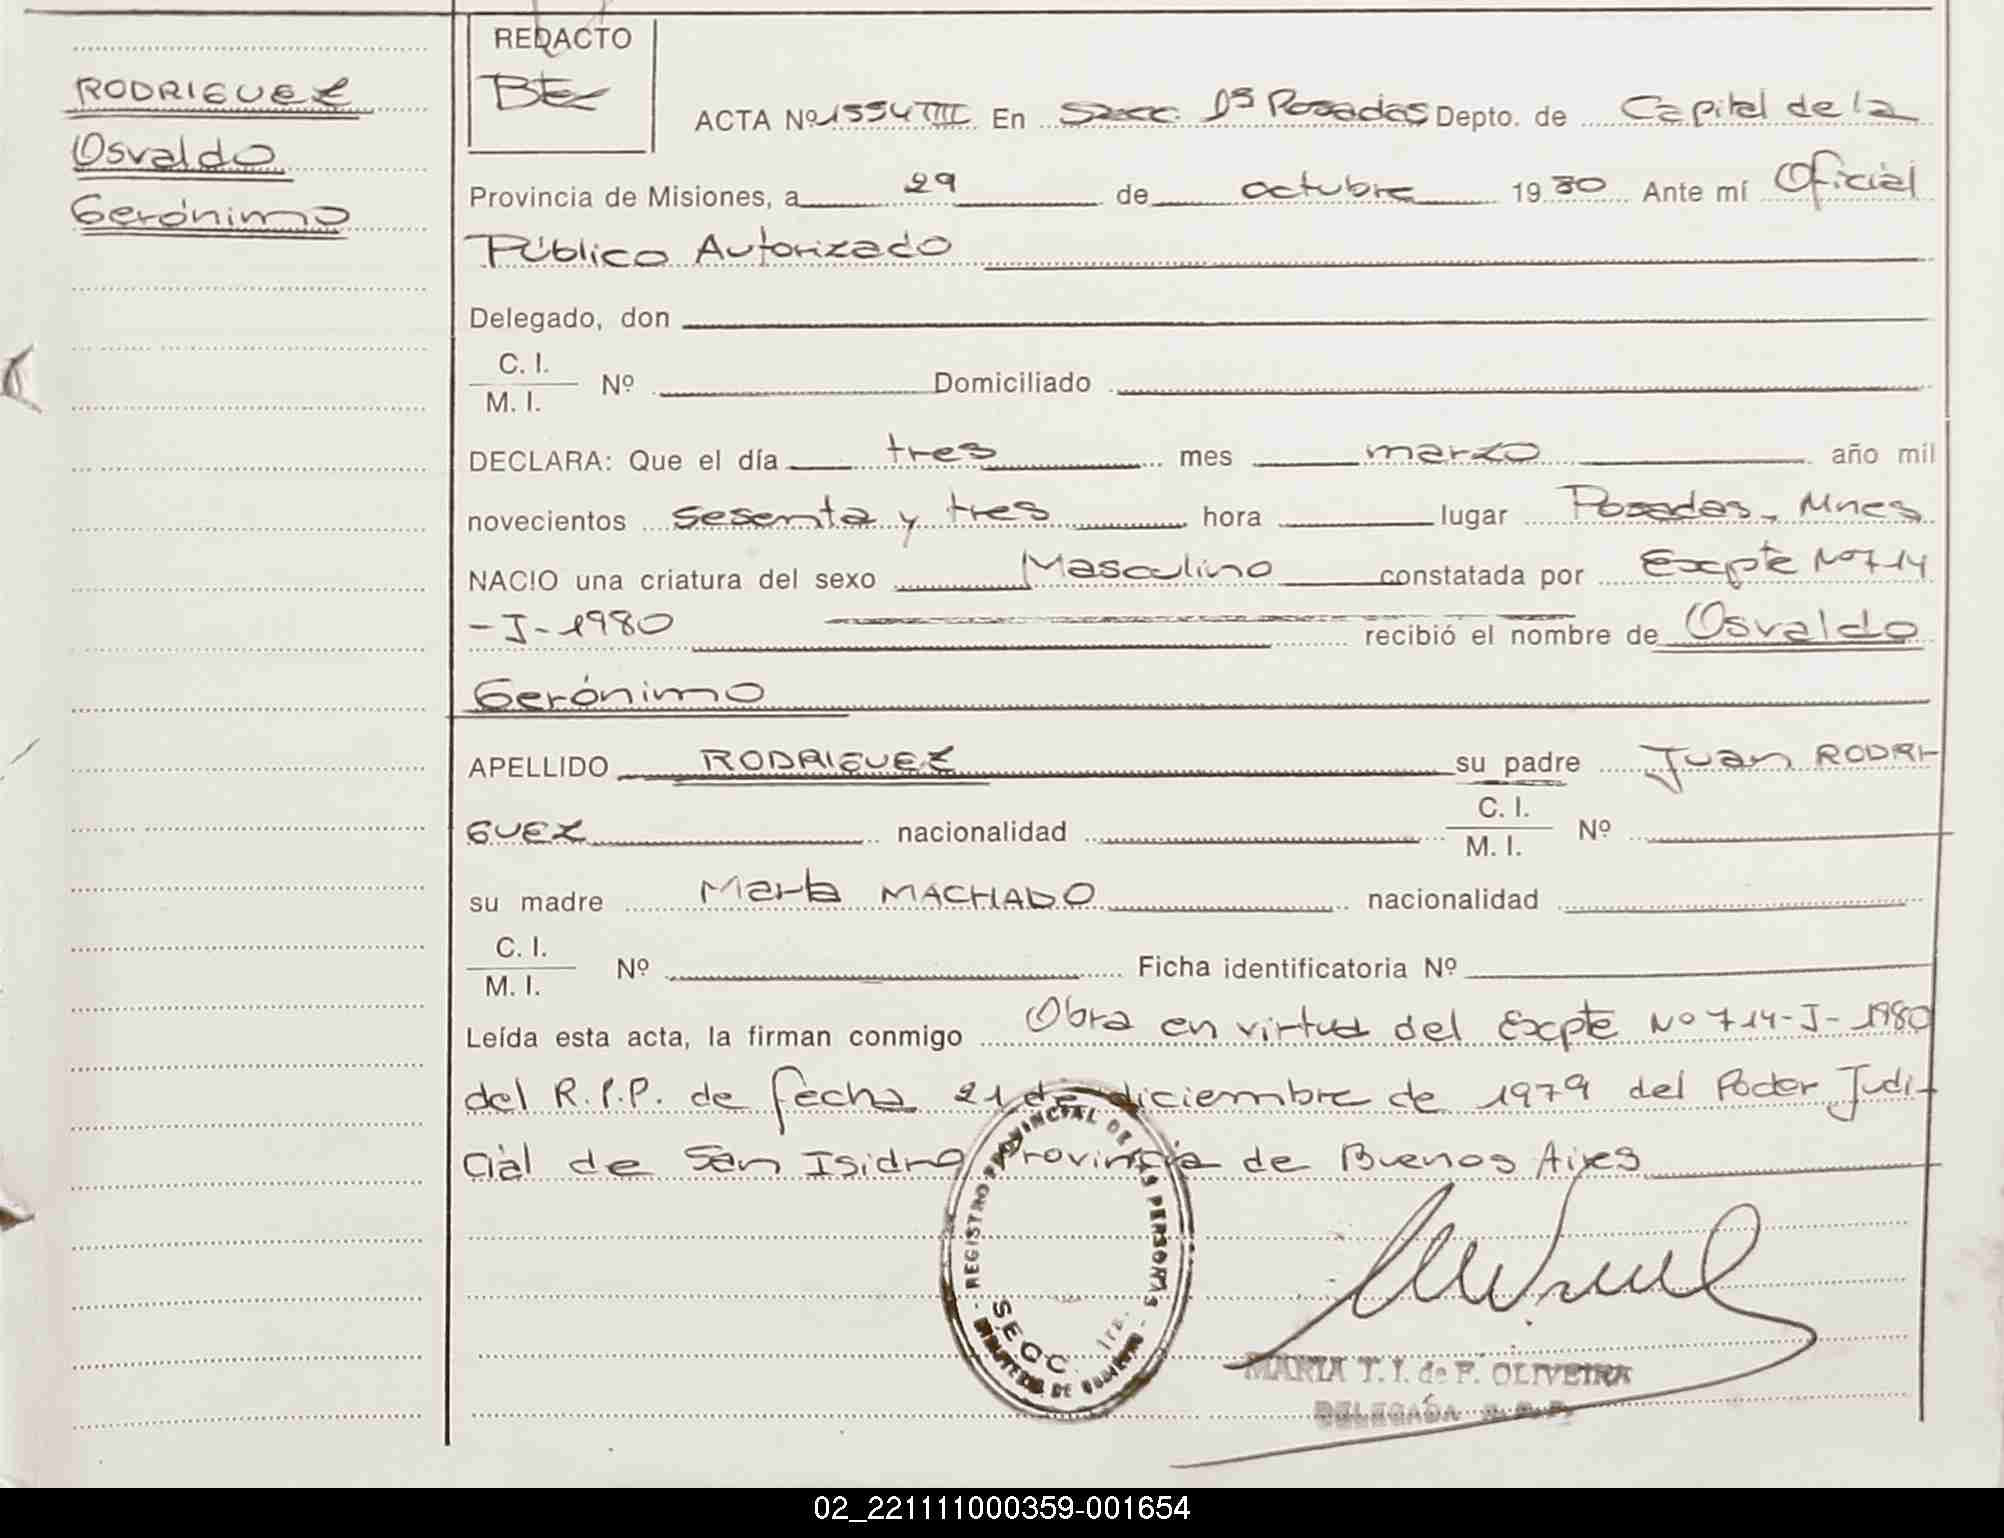 RODRIGUEZ
Osvaldo
Gerónimo
REDACTO
ACTA Nº 1554 TIII En Secc. 1ª Posadas Depto. de Capital de la
Provincia de Misiones, a 29 de octubre 1980 Ante mí Oficial
Público Autorizado
Delegado, don
C. I.
M. I. Nº Domiciliado
DECLARA: Que el día tres mes marzo año mil
novecientos sesenta y tres hora lugar Posadas, Mnes
NACIO una criatura del sexo Masculino constatada por Excpte Nº 714
-I-1980 recibió el nombre de Osvaldo
Gerónimo
APELLIDO RODRIGUEZ su padre Juan RODRI-
GUEZ nacionalidad C. I.
M. I. Nº
su madre María MACHADO nacionalidad
C. I.
M. I. Nº Ficha identificatoria Nº
Leída esta acta, la firman conmigo Obra en virtud del Excpte Nº 714-I-1980
del R.P.P. de fecha 21 de diciembre de 1979 del Poder Judi-
cial de San Isidro Provincia de Buenos Aires
REGISTRO PROVINCIAL DE LAS PERSONAS
SECC. 1ra.
MINISTERIO DE GOBIERNO
MARIA T. I. de F. OLIVEIRA
DELEGADA R. P. P.
02_221111000359-001654